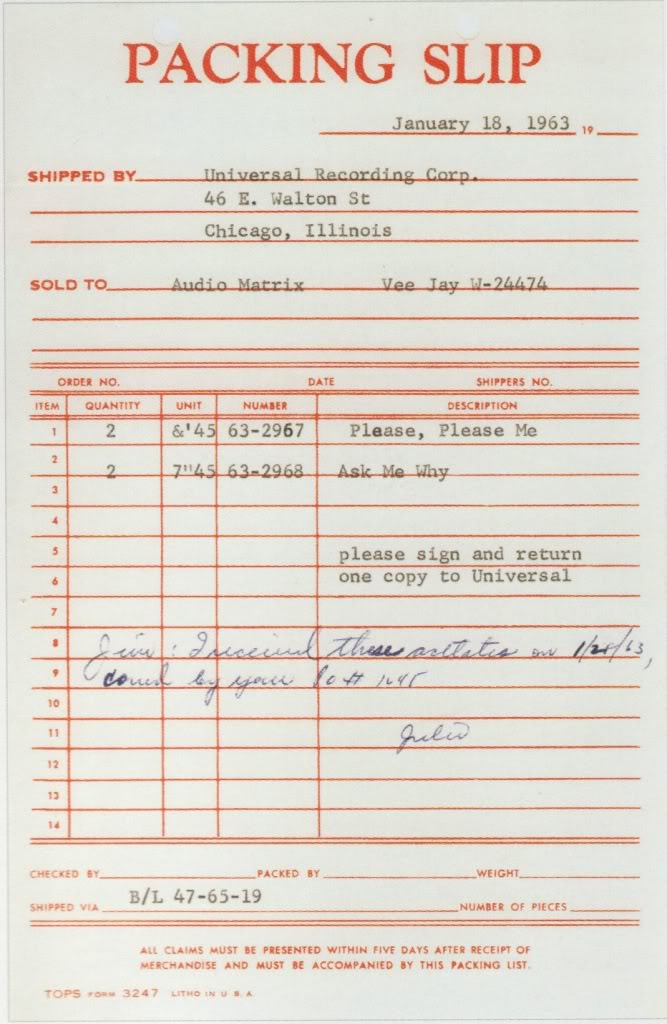 PACKING SLIP
January 18, 1963 19
SHIPPED BY Universal Recording Corp.
46 E. Walton St
Chicago, Illinois
SOLD TO Audio Matrix Vee Jay W-24474
ORDER NO. DATE SHIPPERS NO.
ITEM QUANTITY UNIT NUMBER DESCRIPTION
1 2 &'45 63-2967 Please, Please Me
2
2 7"45 63-2968 Ask Me Why
3
4
5 please sign and return
6 one copy to Universal
7
8 Jim: I received these acetates on 1/28/63,
9 by your PO#
10
11 Julio
12
13
14
CHECKED BY PACKED BY WEIGHT
SHIPPED VIA B/L 47-65-19 NUMBER OF PIECES
ALL CLAIMS MUST BE PRESENTED WITHIN FIVE DAYS AFTER RECEIPT OF
MERCHANDISE AND MUST BE ACCOMPANIED BY THIS PACKING LIST.
TOPS FORM 3247 LITHO IN U S A